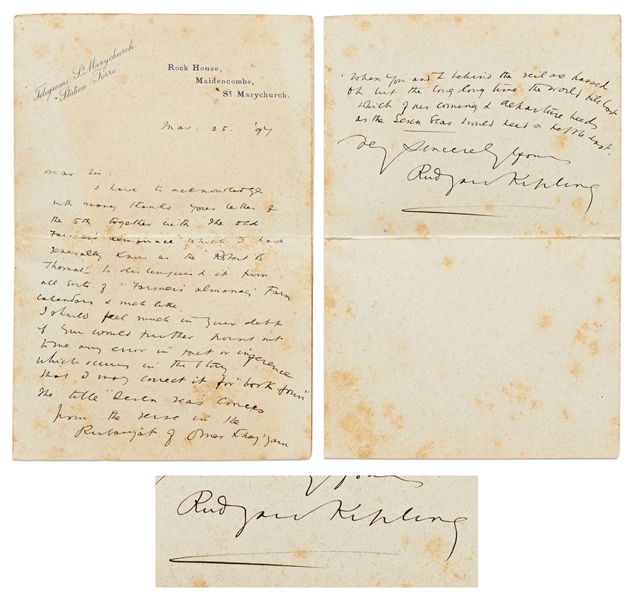 Telegrams St Marychurch.
Station Torre
Rock House,
Maidencombe,
St Marychurch.
Mar. 25. '97
Dear Sir:
I have to acknowledge
with many thanks your letter of
the 5th together with The Old
Farmer's almanac which I had
generally known as the "Robert B
Thomas" to distinguish it from
all sorts of "Farmer's almanacs" Farm
calendars & such like.
I should feel much in your debt
if you would further point out
to me any error in fact or inference
which occurs in the story
that I may correct it for "book form"
The title "Seven Seas" comes
from the verse in the
Rubaiyat of Omar Khayyam
"When You and I behind the veil are passed
Oh but the long long time the world will last
Which of our coming & departure heeds
as the Seven Seas would heed a pebble cast.
Very Sincerely Yours
Rudyard Kipling
Yours
Rudyard Kipling